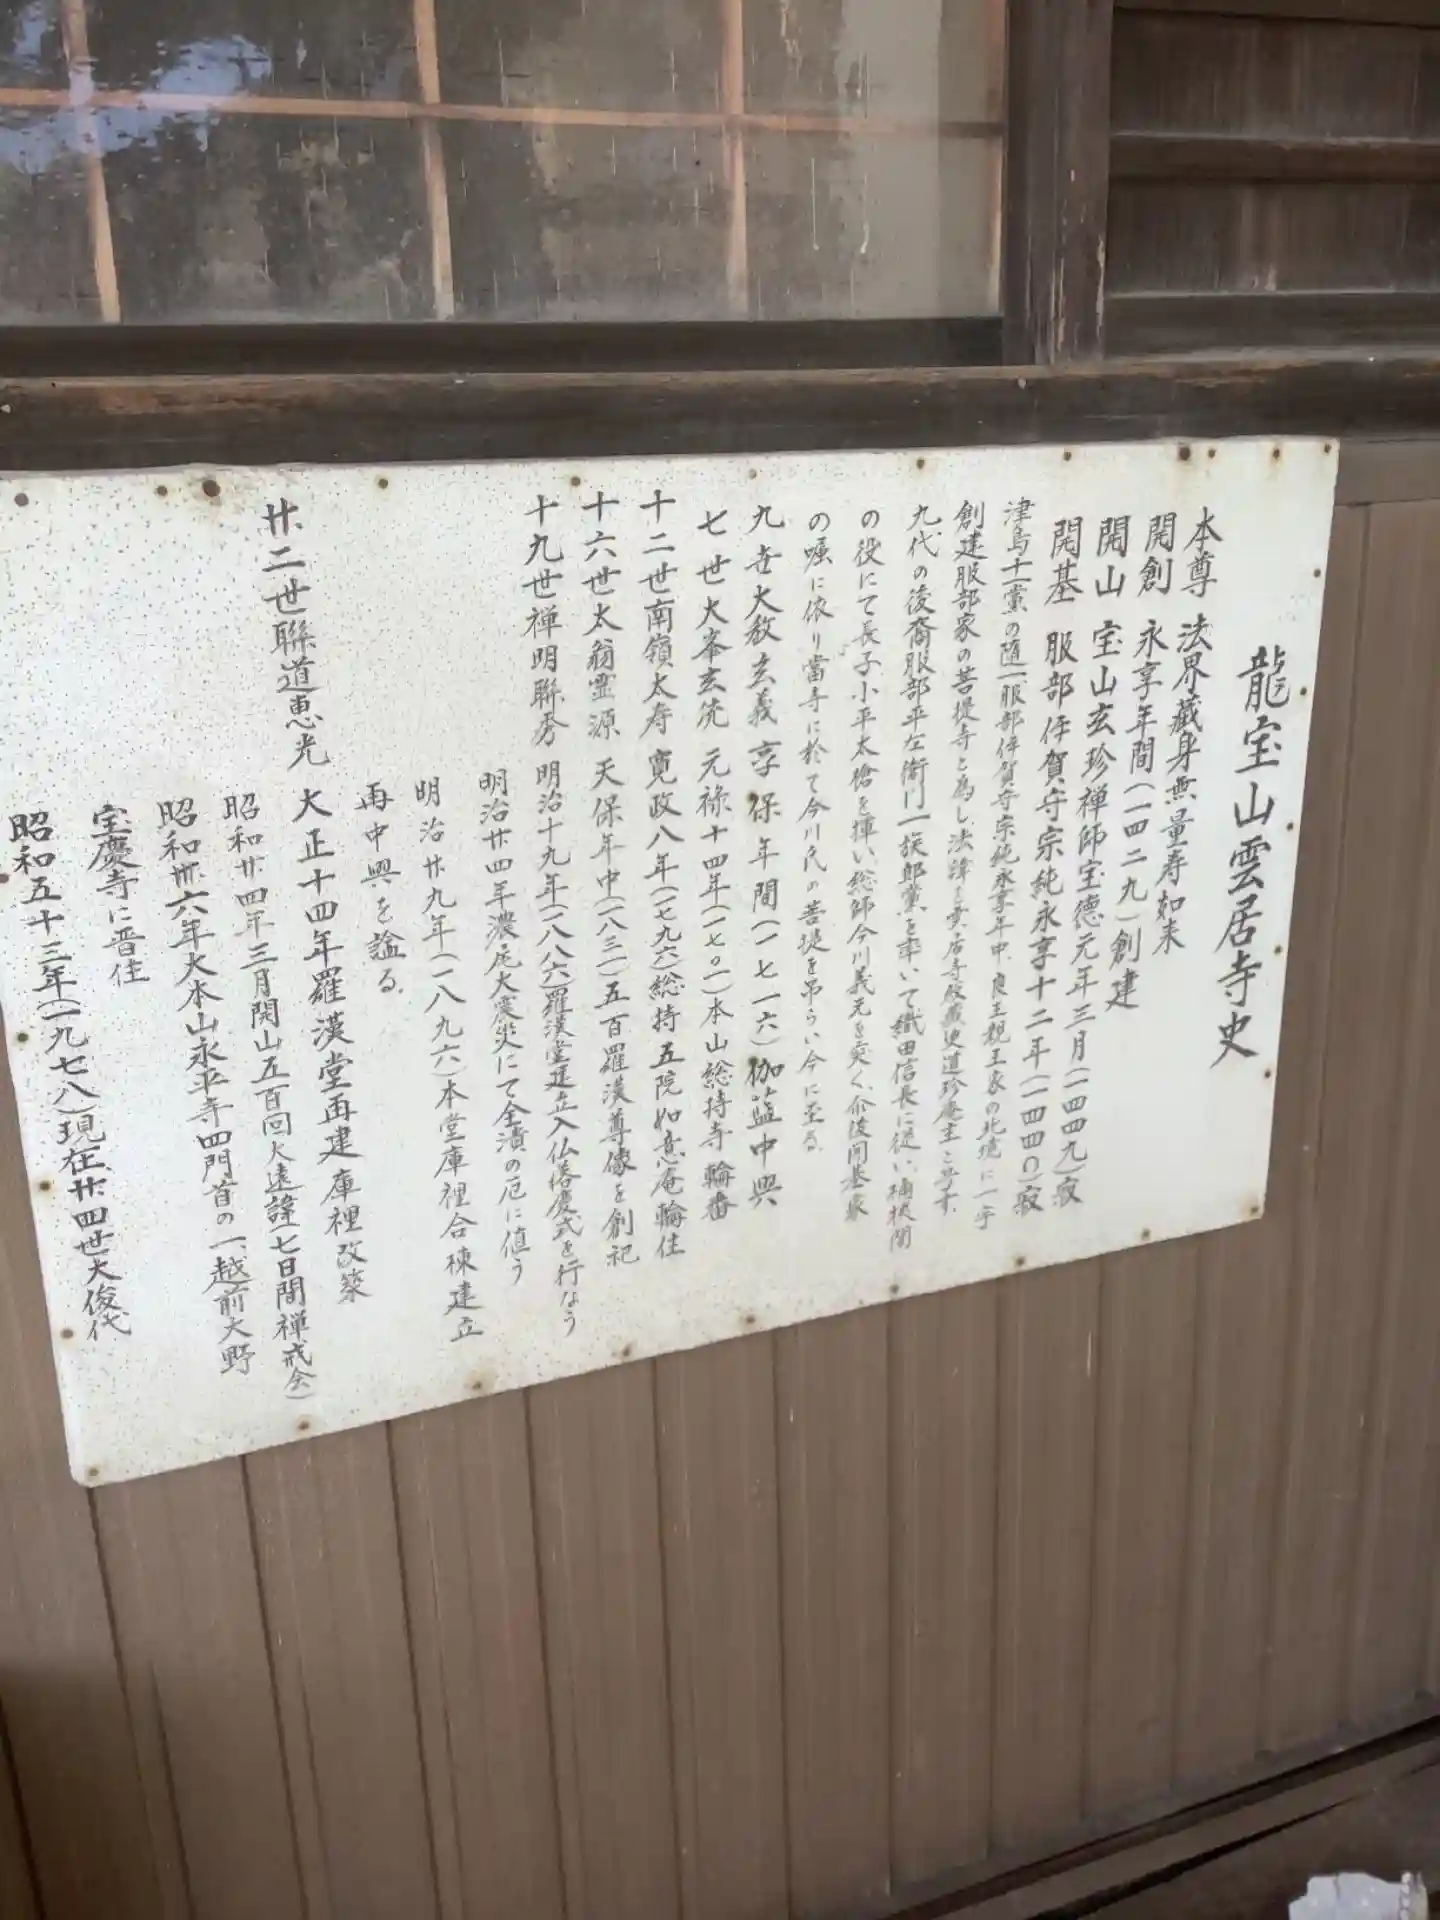 龍宝山雲居寺史
本尊 法界蔵身無量寿如来
開創 永享年間(一四二九)創建
開山 宝山玄珍禅師宝徳元年三月(一四四九)寂
開基 服部伊賀守宗純永享十二年(一四四〇)寂
津島十一党の随一服部伊賀守宗純永享年中、良王親王家の北境に一宇
創建服部家の菩提寺と為し、法諱を雲居寺殿義叟道珍庵主と号す、
九代の後裔服部平左衛門一族郎党を率いて織田信長に従い、桶狭間
の役にて長子小平太槍を揮い総師今川義元を突く、介後開基家
の嘱に依り當寺に於て今川氏の菩提を弔らい今に至る、
九世大敖玄義 享保年間(一七一六)伽藍中興
七世大峯玄統 元禄十四年(一七〇一)本山総持寺輪番
十二世南嶺太寿 寛政八年(一七九六)総持五院如意庵輪住
十六世太翁霊源 天保年中(一八三一)五百羅漢尊像を創祀
十九世禅明聯秀 明治十九年(一八八六)羅漢堂建立入仏落慶式を行なう
明治廿四年濃尾大震災にて全潰の厄に値う
明治廿九年(一八九六)本堂庫裡合棟建立
再中興を謚る、
廿二世聯道恵光 大正十四年羅漢堂再建 庫裡改築
昭和廿四年三月開山五百回大遠諱七日間禅戒会)
昭和卅六年大本山永平寺四門首の一、越前大野
宝慶寺に晋住
昭和五十三年(一九七八)現在廿四世大俊代